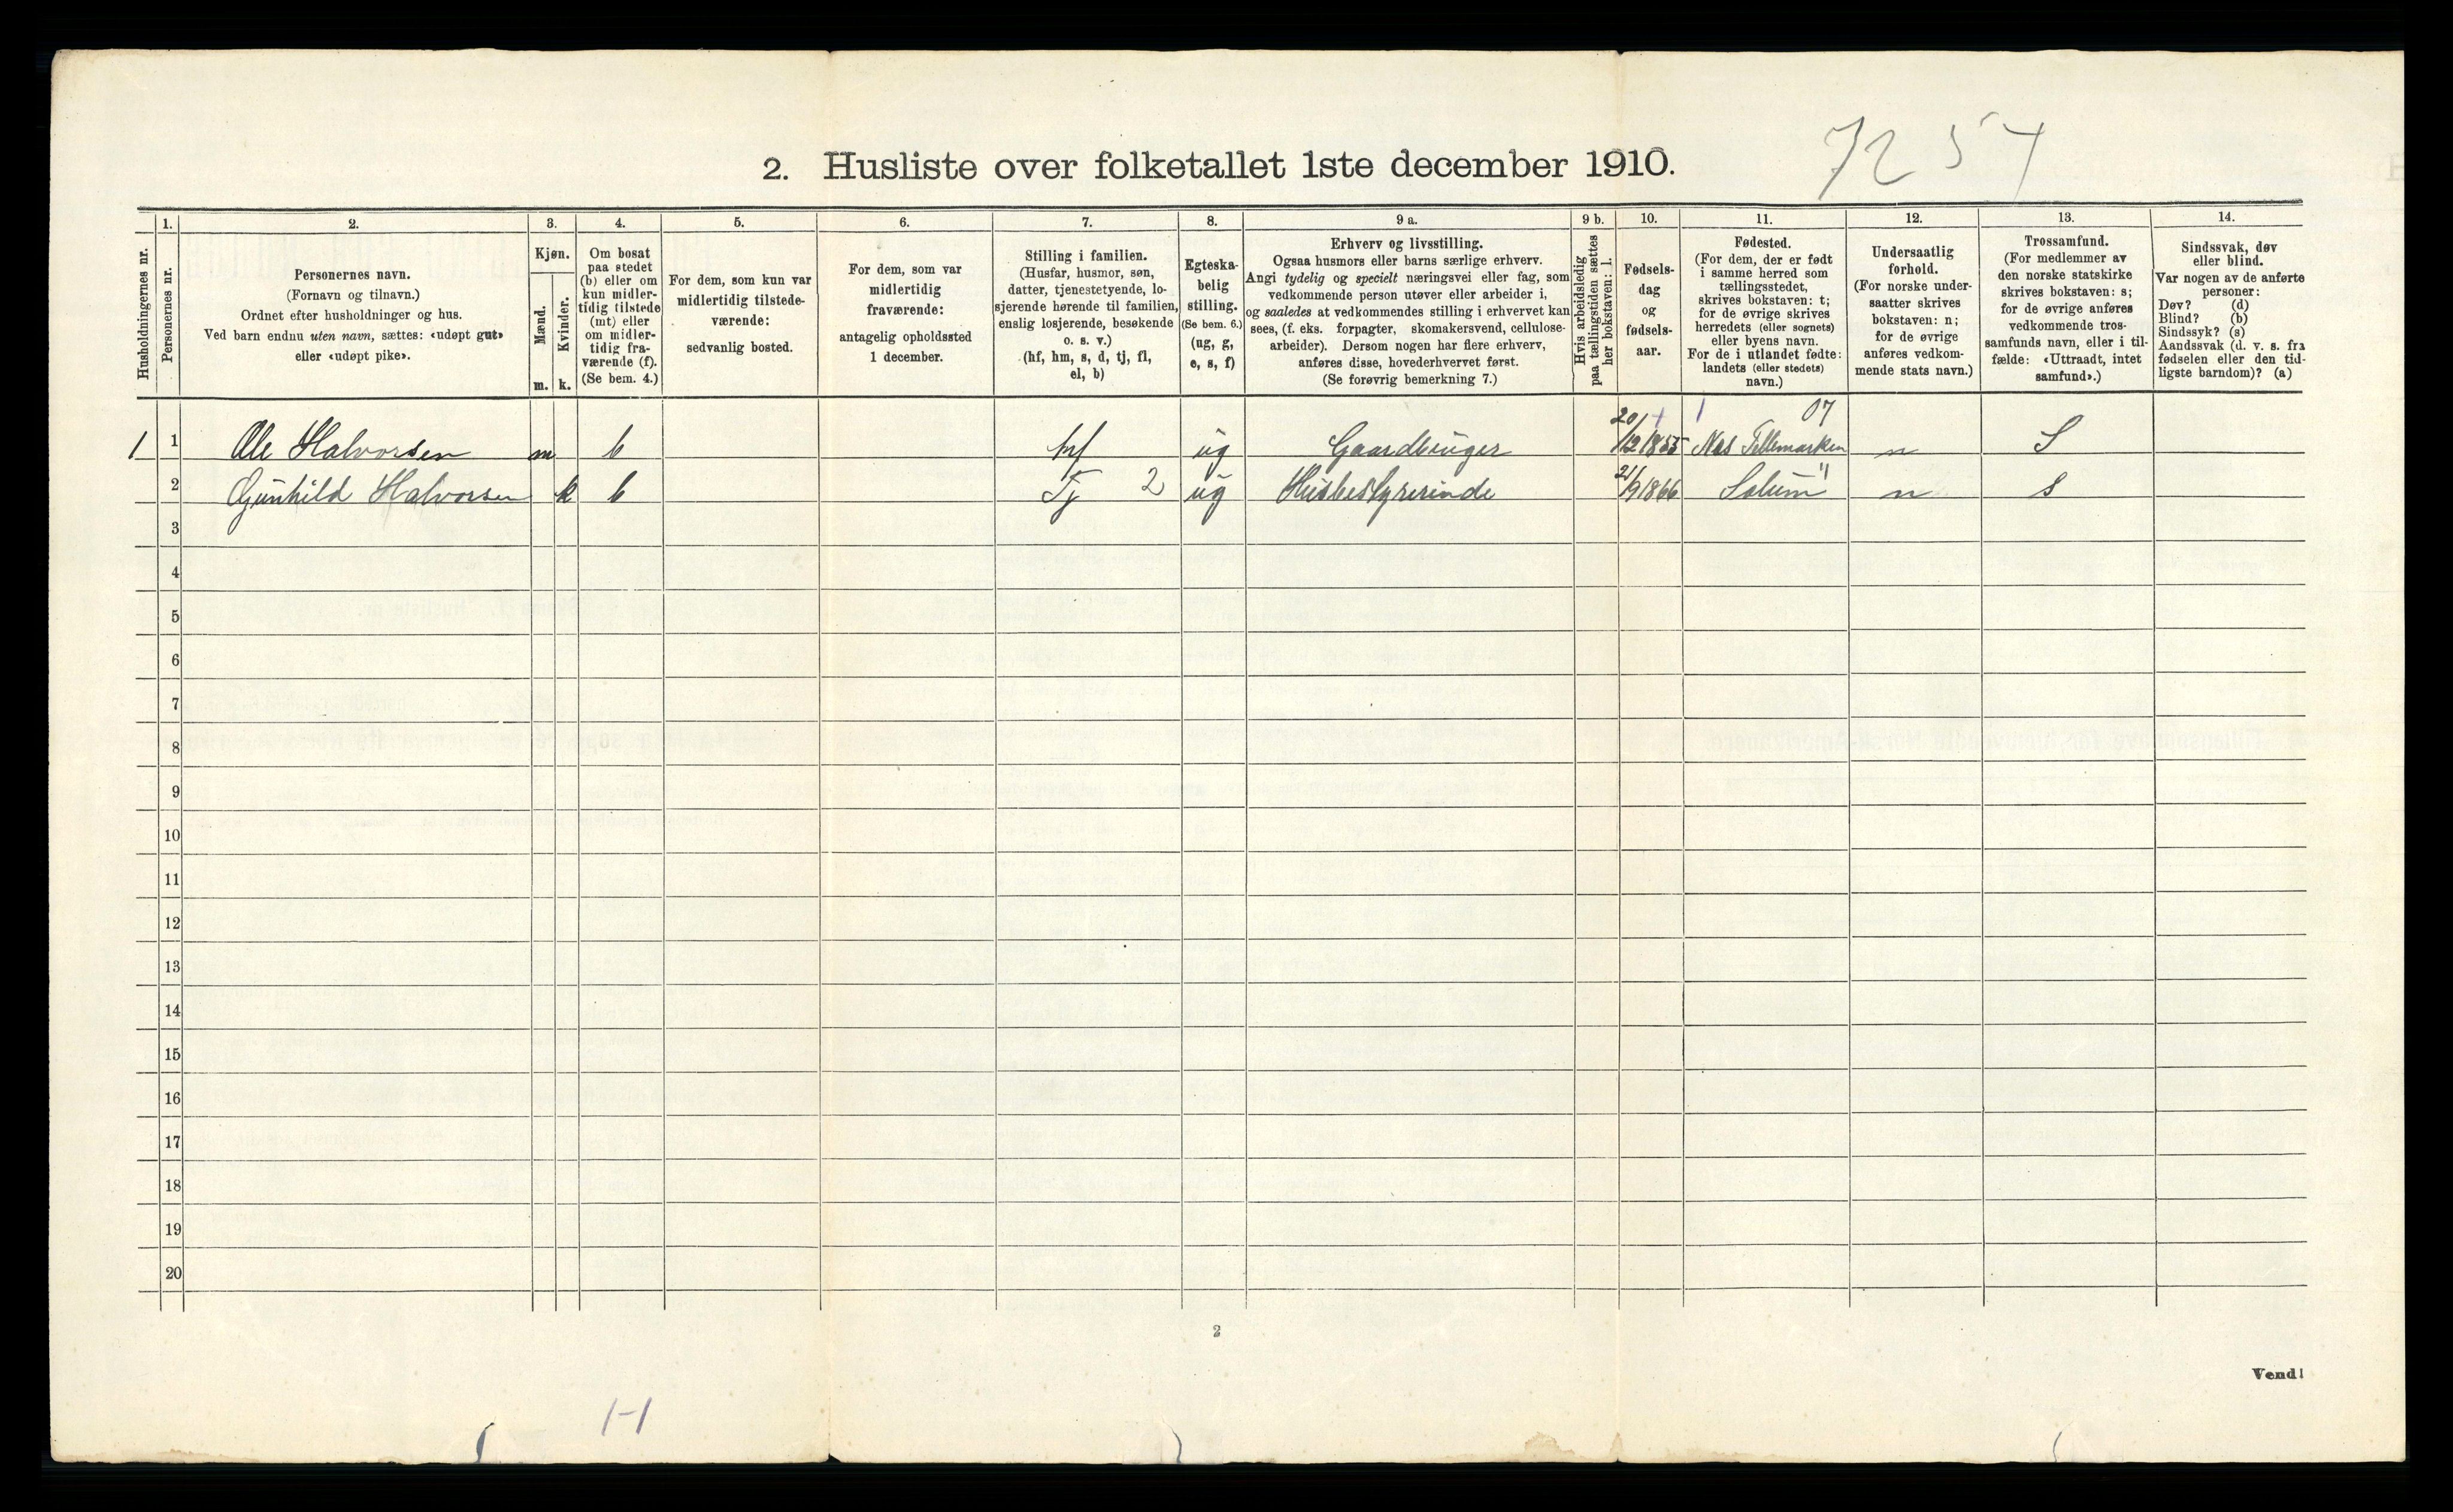 7257
2. Husliste over folketallet 1ste december 1910.
Husholdningernes nr.
1.
Personernes nr.
2.
Personernes navn.
(Fornavn og tilnavn.)
Ordnet efter husholdninger og hus.
Ved barn endnu uten navn, sættes: «udøpt gut»
eller «udøpt pike».
3.
Kjøn.
Mænd.
Kvinder.
m. k.
4.
Om bosat
paa stedet
(b) eller om
kun midler-
tidig tilstede
(mt) eller
om midler-
tidig fra-
værende (f).
(Se bem. 4.)
5.
For dem, som kun var
midlertidig tilstede-
værende:
sedvanlig bosted.
6.
For dem, som var
midlertidig
fraværende:
antagelig opholdssted
1 december.
7.
Stilling i familien.
(Husfar, husmor, søn,
datter, tjenestetyende, lo-
sjerende hørende til familien,
enslig losjerende, besøkende
o. s. v.)
(hf, hm, s, d, tj, fl,
el, b)
8.
Egteska-
belig
stilling.
(Se bem. 6.)
(ug, g,
e, s, f)
9 a.
Erhverv og livsstilling.
Ogsaa husmors eller barns særlige erhverv.
Angi tydelig og specielt næringsvei eller fag, som
vedkommende person utøver eller arbeider i,
og saaledes at vedkommendes stilling i erhvervet kan
sees, (f. eks. forpagter, skomakersvend, cellulose-
arbeider). Dersom nogen har flere erhverv,
anføres disse, hovederhvervet først.
(Se forøvrig bemerkning 7.)
9 b.
Hvis arbeidsledig
paa tællingstiden sættes
her bokstaven: l.
10.
Fødsels-
dag
og
fødsels-
aar.
11.
Fødested.
(For dem, der er født
i samme herred som
tællingsstedet,
skrives bokstaven: t;
for de øvrige skrives
herredets (eller sognets)
eller byens navn.
For de i utlandet fødte:
landets (eller stedets)
navn.)
12.
Undersaatlig
forhold.
(For norske under-
saatter skrives
bokstaven: n;
for de øvrige
anføres vedkom-
mende stats navn.)
13.
Trossamfund.
(For medlemmer av
den norske statskirke
skrives bokstaven: s;
for de øvrige anføres
vedkommende tros-
samfunds navn, eller i til-
fælde: «Uttraadt, intet
samfund».)
14.
Sindssvak, døv
eller blind.
Var nogen av de anførte
personer:
Døv? (d)
Blind? (b)
Sindssyk? (s)
Aandssvak (d. v. s. fra
fødselen eller den tid-
ligste barndom)? (a)
1 07
1 1 Ole Halvorsen m b hf ug Gaardbruger 20/12 1855 Nes Tellemarken n S
2 Gunhild Halvorsen k b Tj 2 ug Husbestyrerinde 21/9 1866 Solum " n s
3
4
5
6
7
8
9
10
11
12
13
14
15
16
17
18
19
20
2
Vend!
1-1